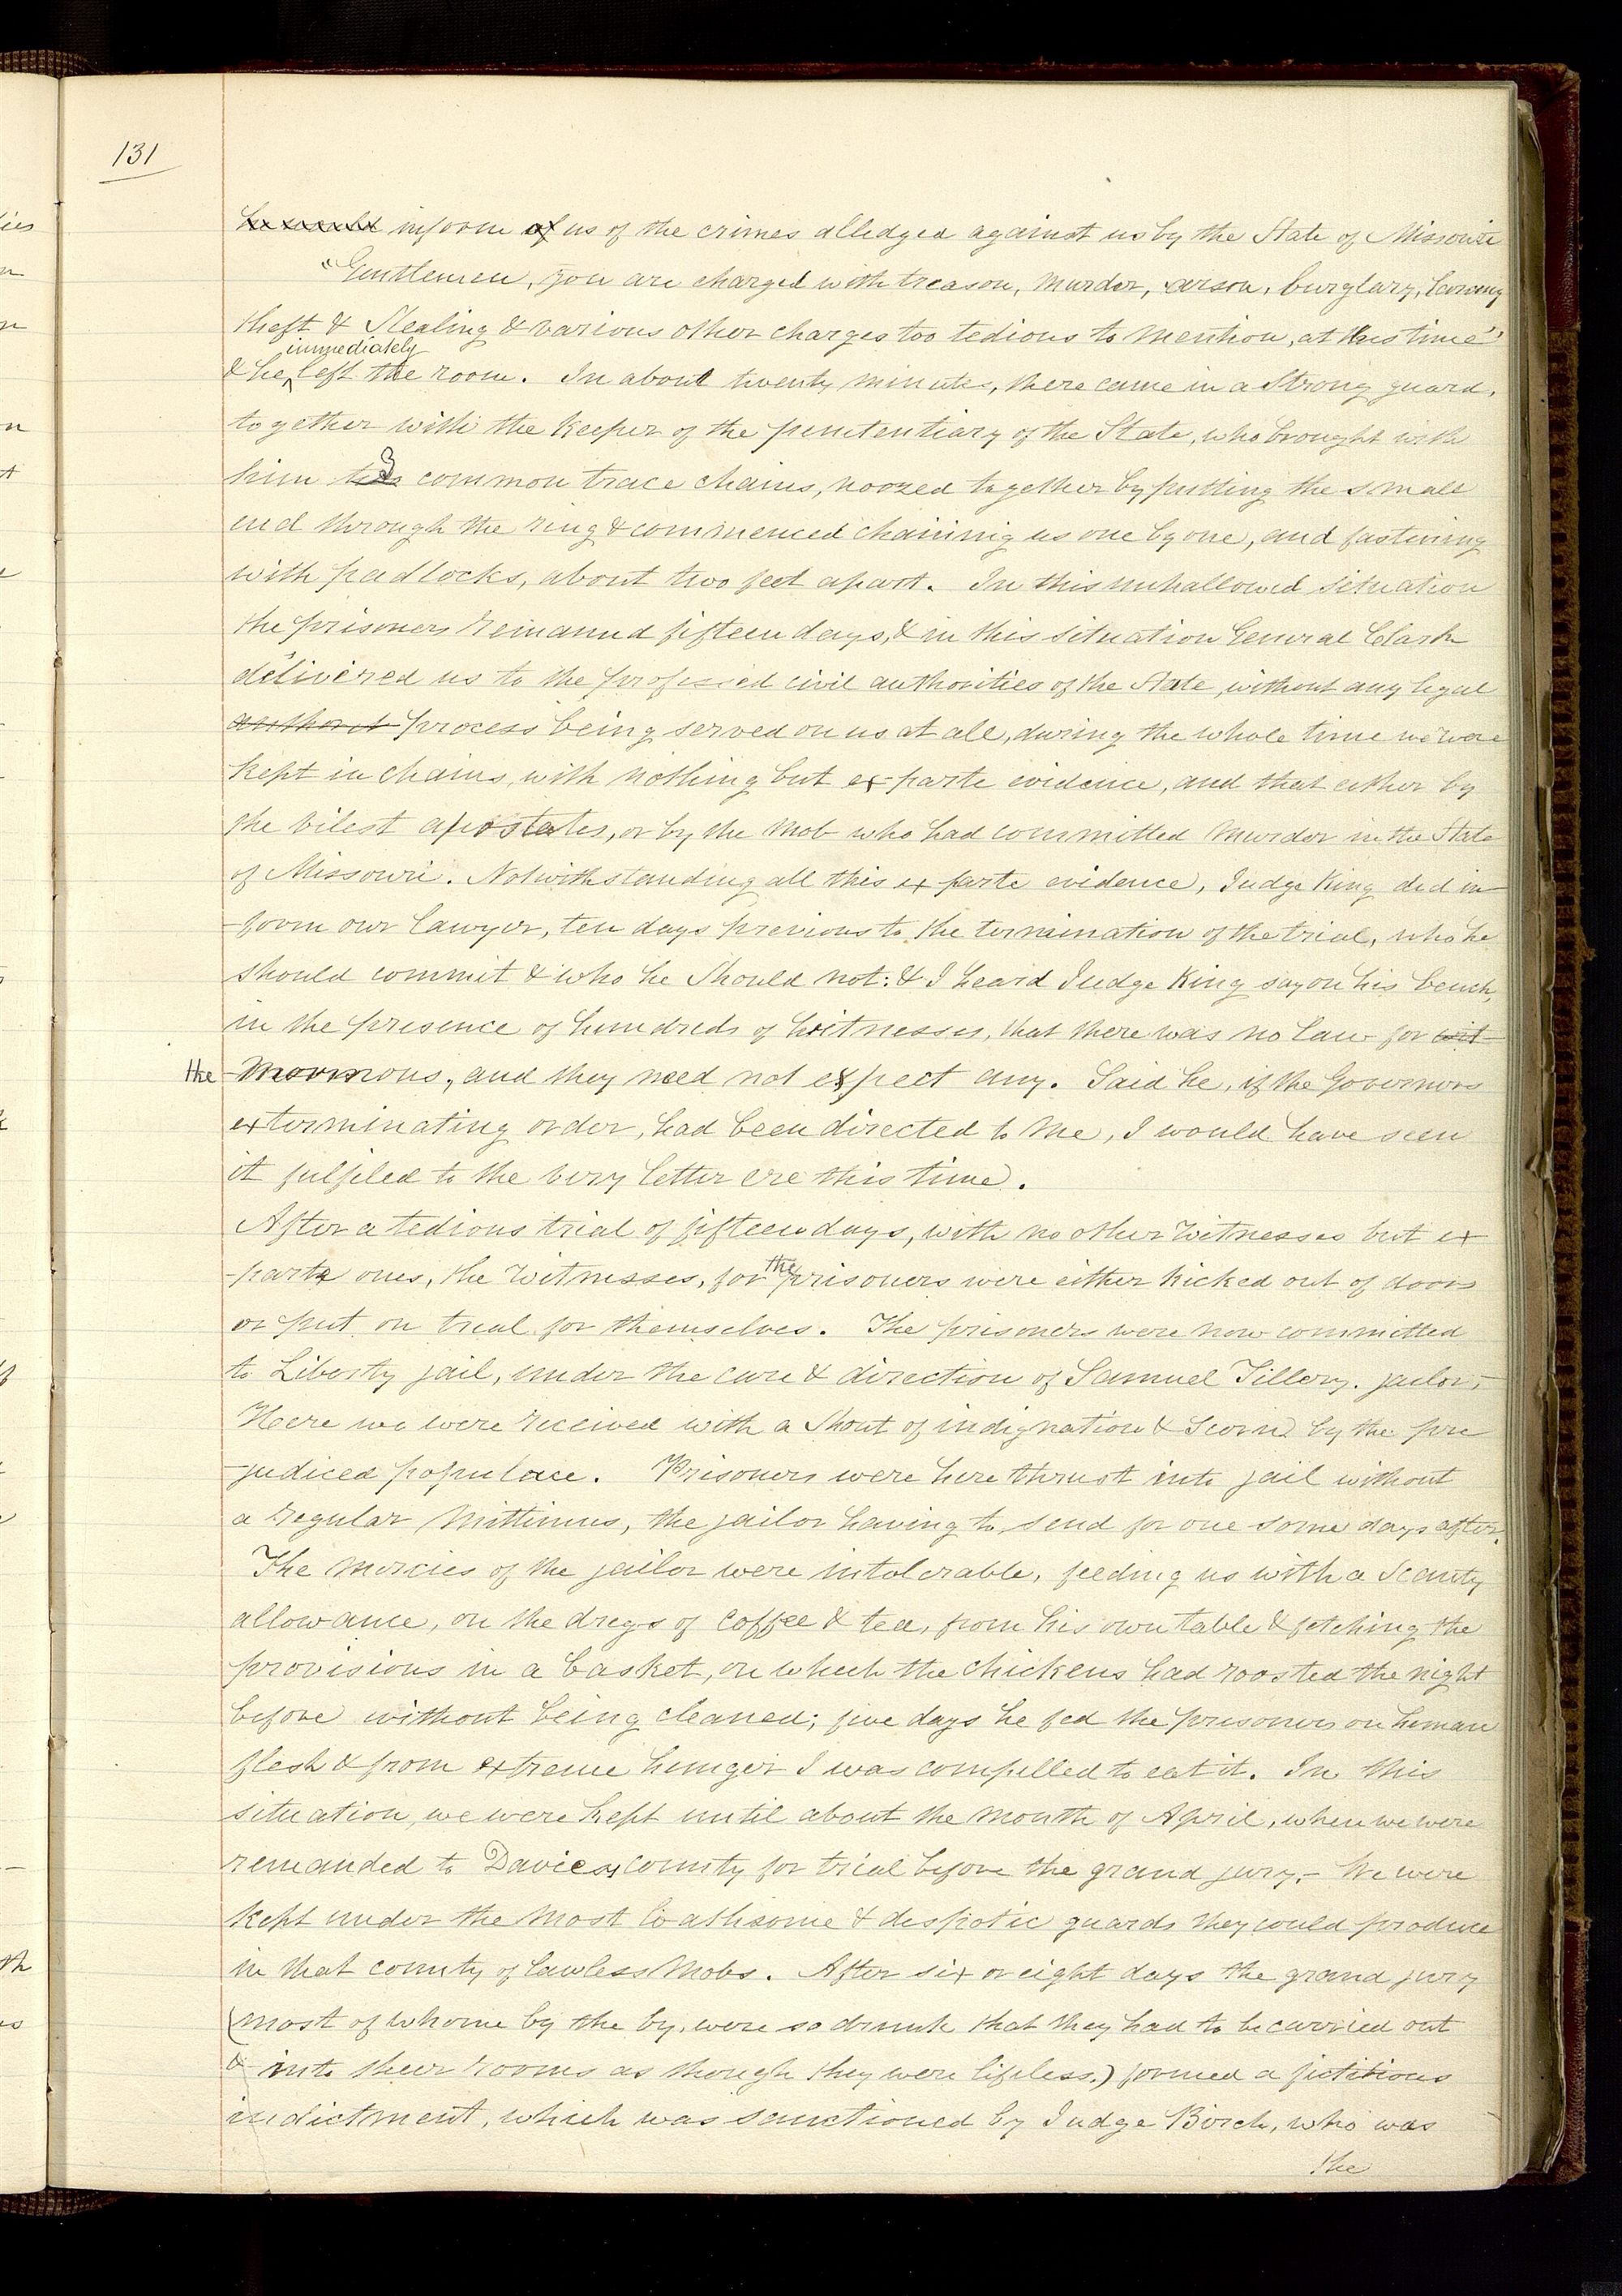 131
he would inform of us of the crimes alledged against us by the State of Missouri
"Gentlemen, you are charged with treason, murder, arson, burglary, larceny
theft & Stealing & various other charges too tedious to mention, at this time"
immediately
& he left the room. In about twenty minutes, there came in a Strong guard,
together with the Keeper of the penetentiary of the State, who brought with
him 3 common trace chains, noozed together by putting the small
end through the ring & commenced chaining us one by one, and fastening
with padlocks, about two feet apart. In this unhallowed situation
the prisoners remained fifteen days, & in this situation General Clark
delivered us to the professed civil authorities of the State, without any legal
authorit process being served on us at all, during the whole time we were
Kept in chains, with nothing but ex-parte evidence, and that either by
the vilest apostates, or by the mob who had committed murder in the State
of Missouri. Notwithstanding all this ex parte evidence, Judge King did in-
-form our lawyer, ten days previous to the termination of the trial, who he
should commit & who he should not: & I heard Judge King say on his bench,
in the presence of hundreds of witnesses, that there was no law for wit-
the Mormons, and they need not expect any. Said he, if the Governors
exterminating order, had been directed to me, I would have seen
it fulfiled to the very letter ere this time.
After a tedious trial of fifteen days, with no other witnesses but ex
the
-parte ones, the Witnesses, for prisoners were either kicked out of doors
or put on trial for themselves. The prisoners were now committed
to Liberty jail, under the care & direction of Samuel Tillery. jailor,-
Here we were received with a shout of indignation & scorn by the pre
-judiced populace. Prisoners were here thrust into jail without
a regular Mittimus, the jailor having to send for one some days after.
The mercies of the jailor were intolerable, feeding us with a scanty
allowance, on the dregs of coffee & tea, from his own table & fetching the
provisions in a basket, on which the chickens had roosted the night
before without being cleaned; five days he fed the prisoners on human
flesh & from extreme hunger I was compelled to eat it. In this
situation, we were kept until about the month of April, when we were
remanded to Daviess county for trial before the grand jury.- We were
Kept under the most loathsome & despotic guards they could produce
in that county of lawless mobs. After six or eight days the grand jury
(most of whome by the by, were so drunk that they had to be carried out
& into their rooms as though they were lifeless.) formed a fictitious
indictment, which was sanctioned by Judge Birch, who was
the